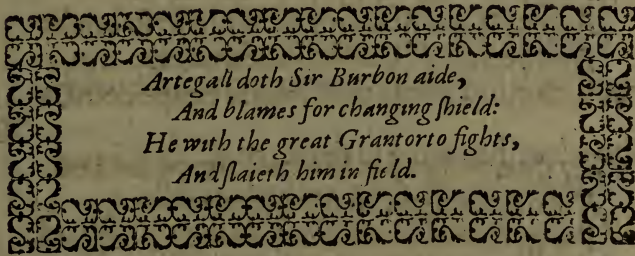 Artegall doth Sir Burbon aide,
And blames for changing ſhield:
He with the great Grantorto fights,
And ſlaieth him in field.